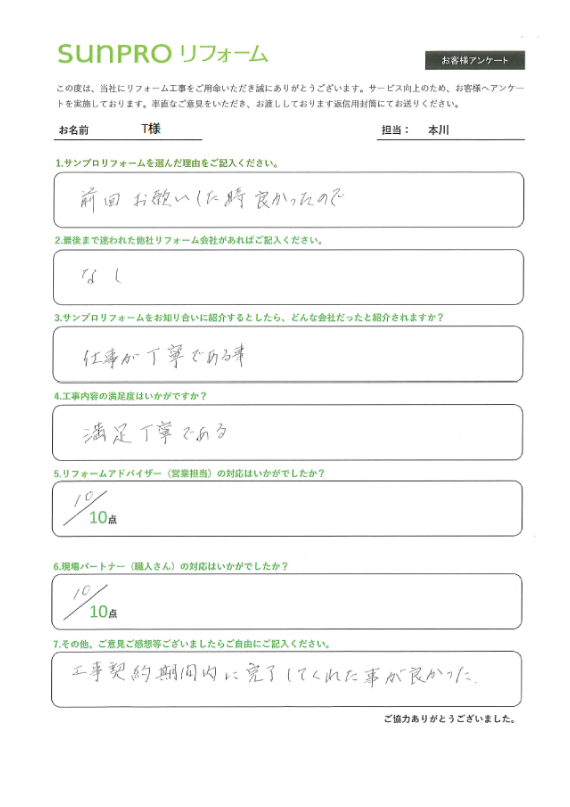 sunPRO リフォーム
お客様アンケート
この度は、当社にリフォーム工事をご用命いただき誠にありがとうございます。サービス向上のため、お客様へアンケー
トを実施しております。率直なご意見をいただき、お渡ししております返信用封筒にてお送りください。
お名前 T様 担当： 本川
1.サンプロリフォームを選んだ理由をご記入ください。
前回お願いした時良かったので
2.最後まで迷われた他社リフォーム会社があればご記入ください。
なし
3.サンプロリフォームをお知り合いに紹介するとしたら、どんな会社だったと紹介されますか？
仕事が丁寧である事
4.工事内容の満足度はいかがですか？
満足丁寧である
5.リフォームアドバイザー（営業担当）の対応はいかがでしたか？
10
10点
6.現場パートナー（職人さん）の対応はいかがでしたか？
10
10点
7.その他、ご意見ご感想等ございましたらご自由にご記入ください。
工事契約期間内に完了してくれた事が良かった.
ご協力ありがとうございました。